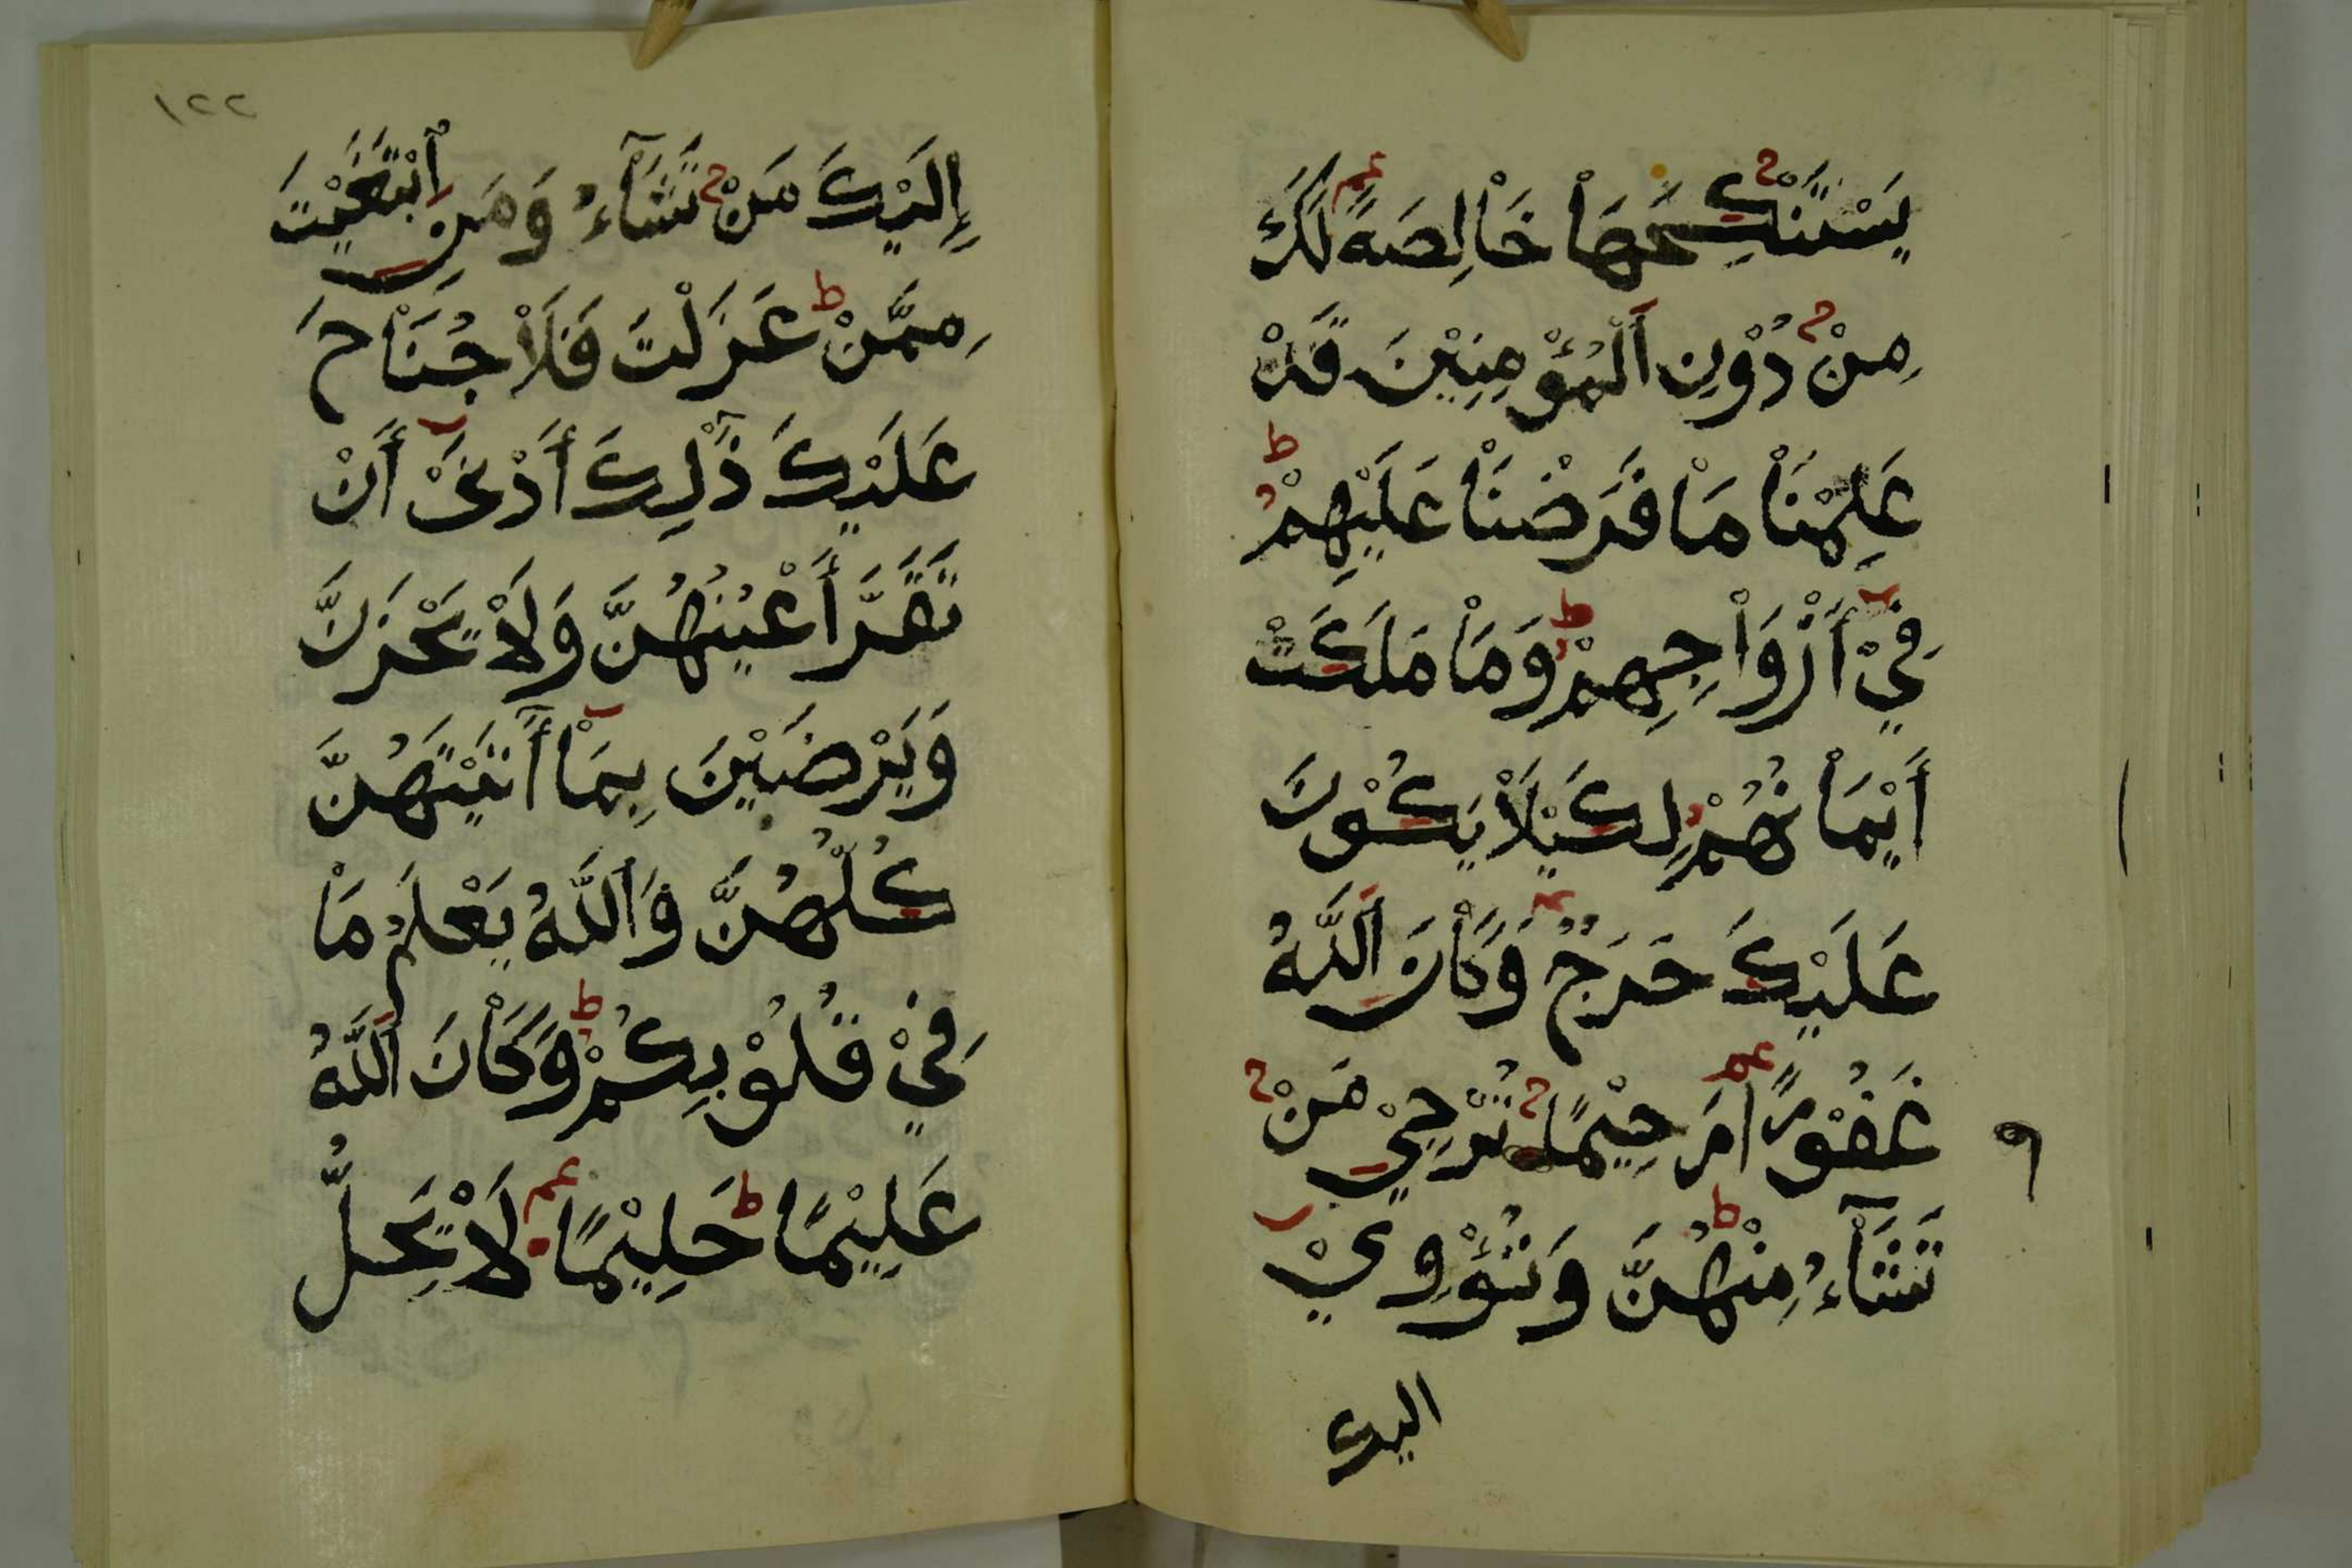 يَسْتَنْكِحَهَاْ خَاْلِصَةً لَكَ
مِنْ دُوْنِ اَلْمُؤْمِنِيْنَ قَدْ
عَلِمْنَاْ مَاْ فَرَضْنَاْ عَلَيْهِمْ
فِيْ أَزْوَاْجِهِمْ وَمَاْ مَلَكَتْ
أَيْمَاْنُهُمْ لِكَيْلَاْ يَكُوْنَ
عَلَيْكَ حَرَجٌ وَكَاْنَ اَللَّهُ
غَفُوْرًا رَحِيْمًا تُرْجِيْ مَنْ
تَشَآءُ مِنْهُنَّ وَتُؤْوِيْ
اليك
١٢٢
إِلَيْكَ مَنْ تَشَآءُ وَمَنِ اُبْتَغَيْتَ
مِمَّنْ عَزَلْتَ فَلَاْ جُنَاْحَ
عَلَيْكَ ذَٰلِكَ أَدْنَىْ أَنْ
تَقَرَّ أَعْيُنُهُنَّ وَلَاْ يَحْزَنَّ
وَيَرْضَيْنَ بِمَاْ أَتَيْتَهُنَّ
كُلُّهُنَّ وَاَللَّهُ يَعْلَمُ مَاْ
فِيْ قُلُوْبِكُمْ وَكَاْنَ اَللَّهُ
عَلِيْمًا حَلِيْمًا لَاْ يَحِلُّ